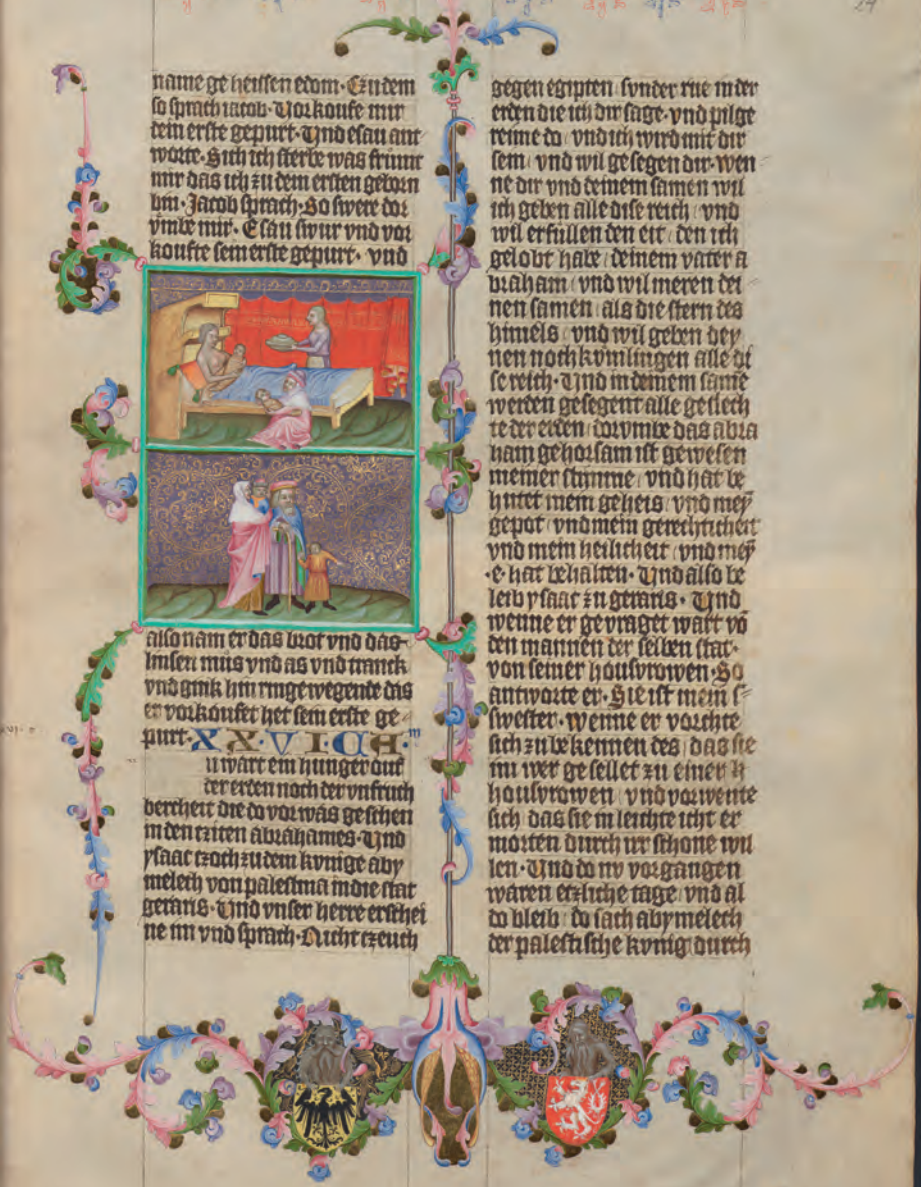 name ge heissen edom · Czu dem
so sprach iacob · Vorkoufe mir
dein erste gepurt · Vnd esau ant
worte · Sich ich sterbe was frumt
mir das ich zu dem ersten geborn
bin · Jacob sprach · So swere dor
vmbe mir · Esau swur vnd vor
koufte sein erste gepurt · vnd
also nam er das brot vnd das
linsen mus vnd as vnd tranck
vnd gink hin ringe wegende das
er vorkoufet het sein erste ge
purt · XXVI CA m
u wart ein hunger ouf
der erden noch der vnfruch
bercheit die do vor was geschen
in den cziten abrahames · Vnd
ysaac czoch zu dem kvnige aby
melech von palestina in die stat
geraris · Vnd vnser herre erschei
ne im vnd sprach · Nicht czeuch
gegen egipten sunder rue in der
erden die ich dir sage · vnd pilge
reime do vnd ich wird mit dir
sein vnd wil gesegen dir · wen
ne dir vnd deinem samen wil
ich geben alle dise reich vnd
wil erfullen den eit den ich
gelobt habe deinem vater a
braham vnd wil meren dei
nen samen als die stern des
himels vnd wil geben dey
nen nochkvmlingen alle di
se reich · Vnd in deinem same
werden gesegent alle geslech
te der erden dorvmbe das abra
ham gehorsam ist gewesen
meiner stimme vnd hat be
hutet mein geheis vnd mey̅
gepot vnd mein gerechticheit
vnd mein heilicheit vnd mey̅
· e · hat behalten · Vnd also be
leib ysaac zu geraris · Vnd
wenne er gevraget wart vo̅
den mannen der selben stat ·
von seiner housvrowen · So
antworte er · Sie ist mein s
swester · wenne er vorchte
sich zu bekennen des das sie
im wer gesellet zu einer h
housvrowen vnd vorwente
sich das sie in leichte icht er
morten durch ir schone wil
len · Vnd do nv vorgangen
waren etzliche tage vnd al
do bleib do sach abymelech
der palestische kvnig durch